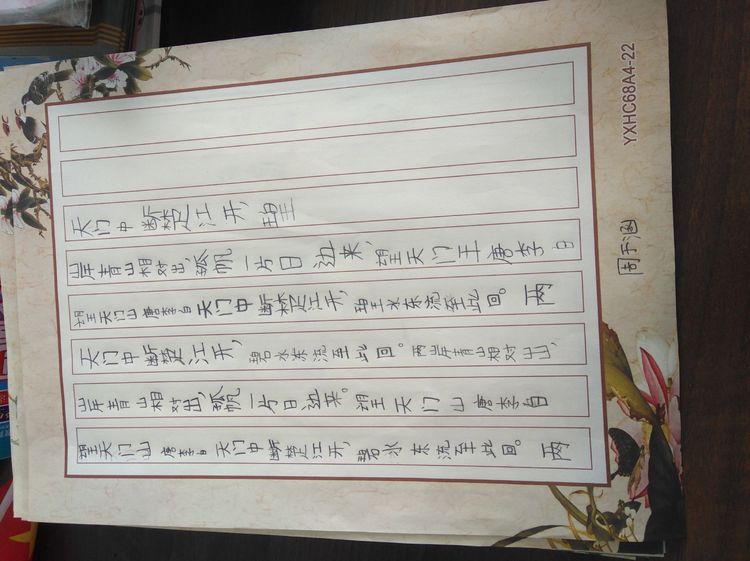 望天门山唐李白天门中断楚江开,碧水东流至此回。两
岸青山相对出,孤帆一片日边来。望天门山唐李白
天门中断楚江开,碧水东流至此回。两岸青山相对出,
望天门山唐李白天门中断楚江开,碧水东流至此回。两
岸青山相对出孤帆一片日边来,望天门王唐李白
天门中断楚江开,碧
周子涵
YXHC68A4-22